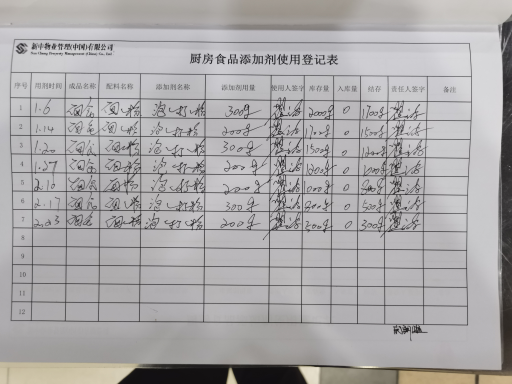 新中物业管理(中国)有限公司
厨房食品添加剂使用登记表
序号 用剂时间 成品名称 配料名称 添加剂名称 添加剂用量 使用人签字 库存量 入库量 结存 责任人签字 备注
1 1.6 面食 面粉 泡打粉 300g 2000g 0 1700g
2 1.14 面食 面粉 泡打粉 200g 1700g 0 1500g
3 1.20 面食 面粉 泡打粉 300g 1500g 0 1200g
4 1.27 面食 面粉 泡打粉 200g 1200g 0 1000g
5 2.10 面食 面粉 泡打粉 200g 1000g 0
6 2.17 面食 面粉 泡打粉 300g 800g 0 500g
7 2.23 面食 面粉 泡打粉 200g 0 300g
8
9
10
11
12